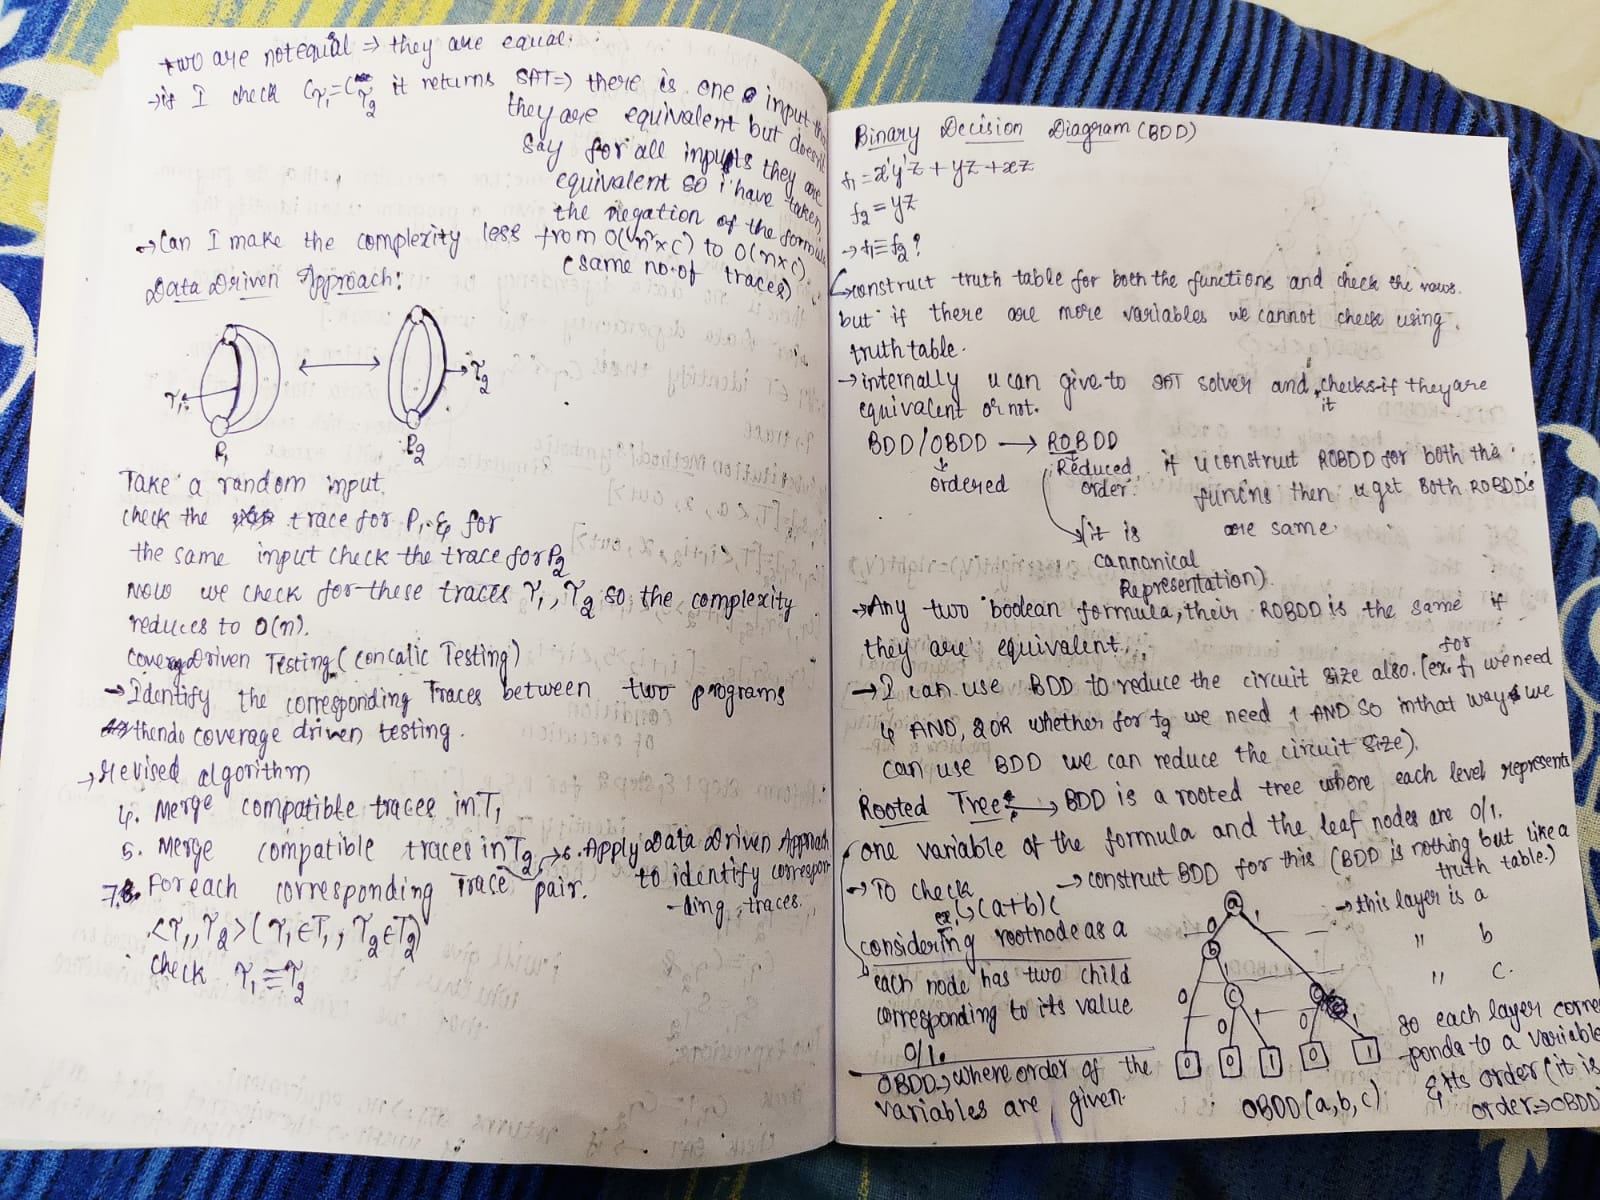 two are not equal ⇒ they are equal.
→ if I check Cτ₁=Cτ₂ it returns SAT ⇒ there is one input
they are equivalent but doesn't
say for all inputs they are
equivalent so i have taken
the negation of the formula
→ Can I make the complexity less from O(n²×c) to O(n×c)
(same no. of traces)
Data Driven Approach:
τ₁
τ₂
P₁
P₂
Take a random input
check the trace for P₁ & for
the same input check the trace for P₂
now we check for these traces τ₁, τ₂ so the complexity
reduces to O(n).
Driven Testing (Concalic Testing)
→ Identify the corresponding Traces between two programs
thendo coverage driven testing.
→ revised algorithm
4. Merge compatible traces in T₁
5. Merge compatible traces in T₂
→ 6. Apply Data Driven Approach
to identify correspon
-ding traces.
7. For each corresponding Trace pair.
<τ₁, τ₂> (τ₁∈T₁, τ₂∈T₂)
check τ₁ ≡ τ₂
Binary Decision Diagram (BDD)
f₁ = x'y'z + yz + xz
f₂ = yz
→ f₁ ≡ f₂?
↳ construct truth table for both the functions and check the rows.
but if there are more variables we cannot check using
truth table.
→ internally u can give to SAT solver and it checks if they are
equivalent or not.
BDD/OBDD → ROBDD
ordered
Reduced
order.
(it is
cannonical
Representation)
if u construct ROBDD for both the
funcns then u get both ROBDDs
are same.
→ Any two boolean formula, their ROBDD is the same if
they are equivalent.
→ I can use BDD to reduce the circuit size also. (ex. for f₁ we need
4 AND, 2 OR whether for f₂ we need 1 AND so in that way we
can use BDD we can reduce the circuit size).
Rooted Tree: → BDD is a rooted tree where each level represents
one variable of the formula and the leaf nodes are 0/1.
→ To check
→ construct BDD for this (BDD is nothing but like a
truth table.)
ex: ↳ (a+b)c
considering rootnode as a
each node has two child
corresponding to its value
0/1.
OBDD → where order of the
variables are given.
a
0 1
b
0 1
c c
0 1 0 1
0 0 1 0 1
OBDD (a, b, c)
→ this layer is a
" b
" c.
so each layer corres
-ponds to a variable
& its order (it is
order ⇒ OBDD